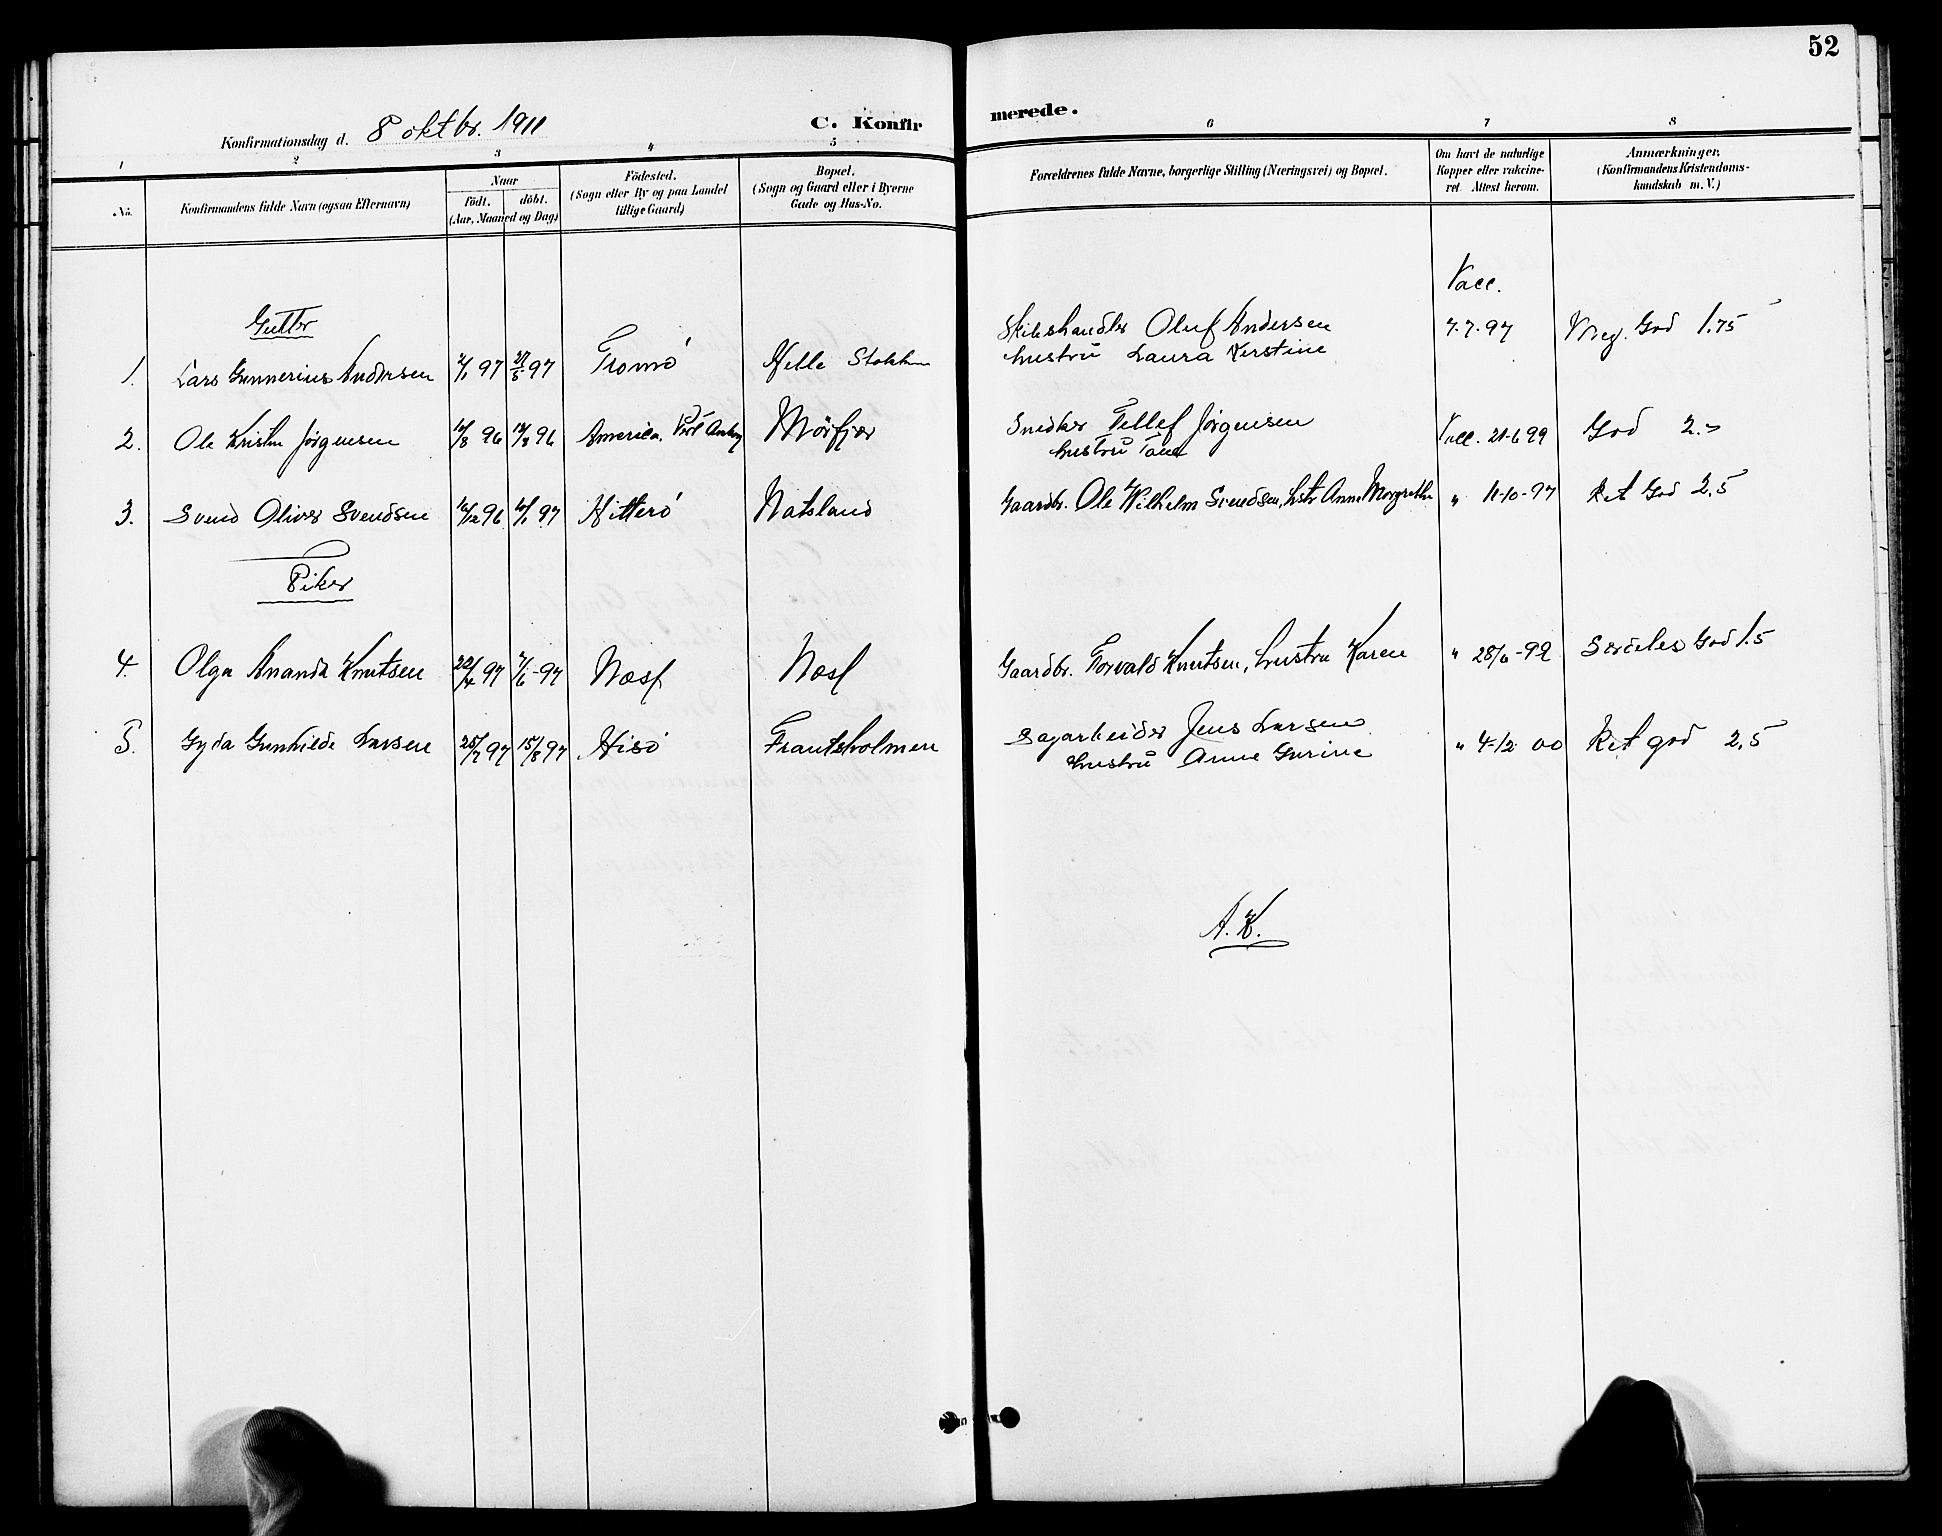 52
Konfirmationsdag d. 8 oktbr. 1911
C. Konfir
merede.
1 2 3 4 5 6 7 8
No.
Konfirmandens fulde Navn (ogsaa Efternavn)
Naar
födt. döbt.
(Aar, Maaned og Dag)
Födested.
(Sogn eller By og paa Landet
tillige Gaard)
Bopæl.
(Sogn og Gaard eller i Byerne
Gade og Hus-No.
Forældrenes fulde Navne, borgerlige Stilling (Næringsvei) og Bopæl.
Om havt de naturlige
Kopper eller vakcine-
ret. Attest herom.
Anmærkninger.
(Konfirmandens Kristendoms-
kundskab m. V.)
Gutter
Vacc.
1. Lars Gunnerius Andersen 97 27/5 97 Tromö Helle Skibshandler Oluf Andersen 7.7.97 Meg. God 1.75
hustru Laura Kerstine
2. Ole Kristen Jörgensen 96 96 America. Mörfjær Snedker Tellef Jörgensen Vacc. 21-6 99 God 2.-
hustru
3. Svend Oliver Svendsen 96 97 Hitterö Natsland Gaardbr. Ole Wilhelm Svendsen, hstr Anne Margrethe " 11-10-97 Ret God 2,5
Piker
4. Olga Amanda Knutsen 22/4 97 97 Næss Næss Gaardbr. Torvald Knutsen, hustru Karen " 28/6-99 Særdeles God 1.5
5. Gyda Gunhilde Larsen 25/7 97 15/8 97 Hisö Frantsholmen Sagarbeider Jens Larsen " 4-12 00 Ret god 2,5
hustru Anne Gurine
A. K.